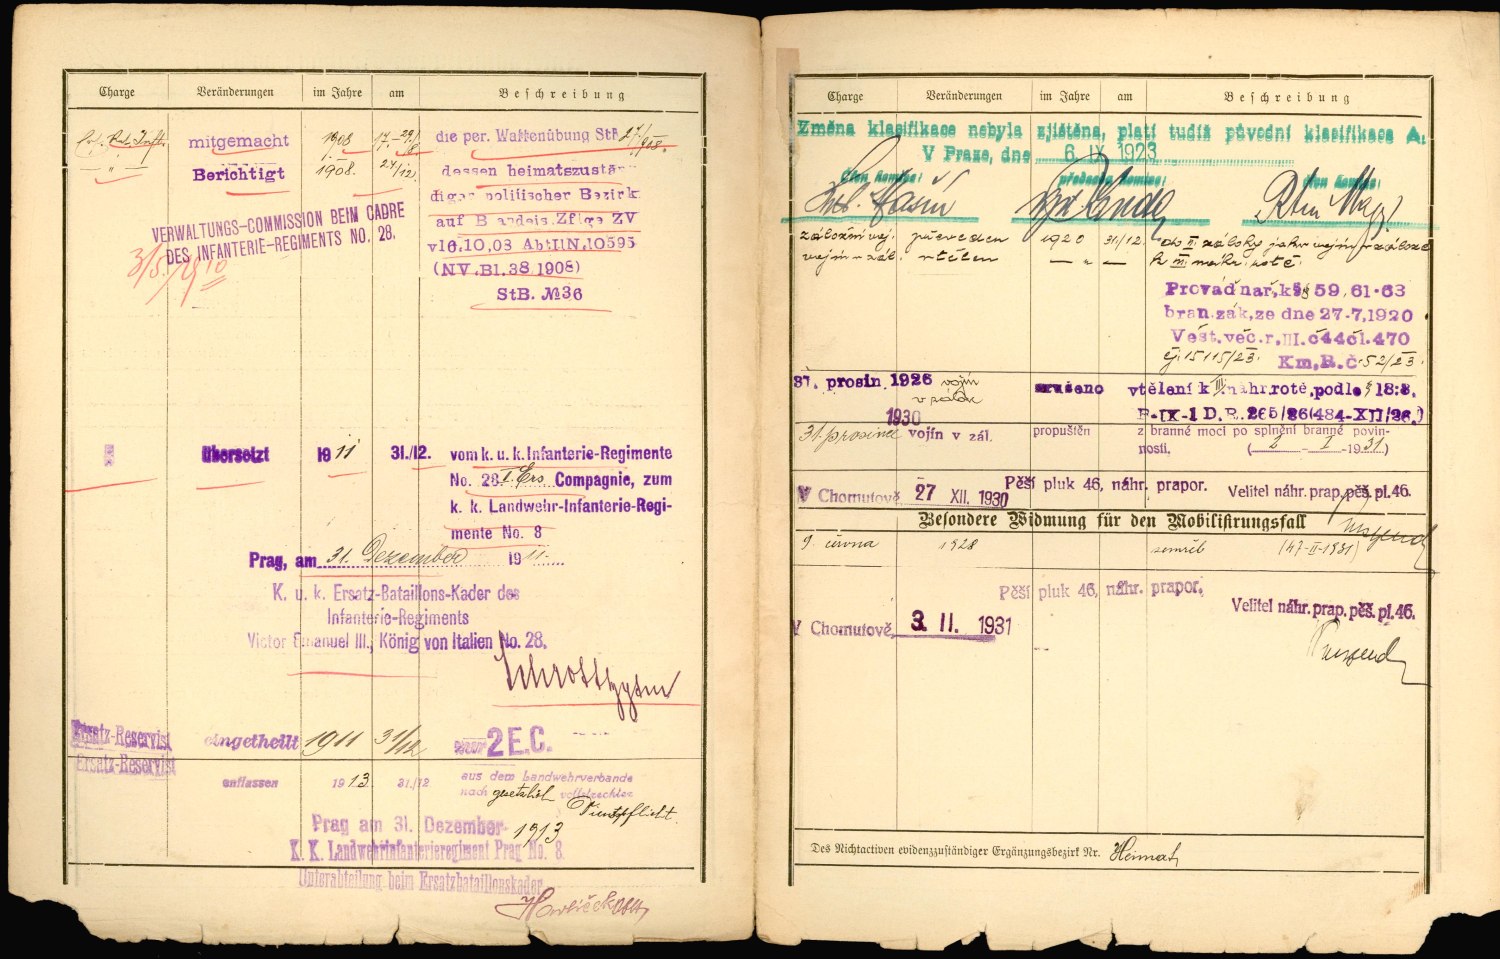 Charge Veränderungen im Jahre am Beschreibung
mitgemacht 1908 17.-29/8 die per. Waffenübung StB. 27/908.
Berichtigt 1908. 27/12. dessen heimatszustän-
diger politischer Bezirk
auf Brandeis. Zflge ZV
v 16.10.08 Abt II N, 10595
(NV. Bl. 38 1908)
StB. № 36
VERWALTUNGS-COMMISSION BEIM CADRE
DES INFANTERIE-REGIMENTS NO. 28.
übersetzt 1911 31./12. vom k. u. k. Infanterie-Regimente
No. 28 I. Ers Compagnie, zum
k. k. Landwehr-Infanterie-Regi-
mente No. 8
Prag, am 31. Dezember 1911.
K. u. k. Ersatz-Bataillons-Kader des
Infanterie-Regiments
Victor Emanuel III., König von Italien No. 28.
Ersatz-Reservist eingetheilt 1911 31/12 2 E.C.
Ersatz-Reservist entlassen 1913 31./12 aus dem Landwehrverbande
nach gesetzlich vollstreckter
Dienstpflicht.
Prag am 31. Dezember 1913
K. K. Landwehrinfanterieregiment Prag No. 8.
Unterabteilung beim Ersatzbataillonskader
Havlíček
Charge Veränderungen im Jahre am Beschreibung
Změna klasifikace nebyla zjištěna, platí tudíž původní klasifikace A.
V Praze, dne 6. IX. 1923
Člen komise: předseda komise: člen komise:
záložní voj. převeden 1920 31/12. do II. zálohy jako vojín v záloze
vojín v zál. vtělen — " — k III. náhr. rotě.
Provád nař, k §§ 59, 61-63
bran. zák, ze dne 27-7, 1920
Věst. věc. r, III. č 44 čl. 470
čj. 15115/23. Km, R. č. 52/23
31. prosin. 1926 vojín zrušeno vtělení k III. náhr. rotě, podle § 18:8,
v zál.
B-IX-1 D. R. 265/26 (484-XII/26.)
1930
31. prosince vojín v zál. propuštěn z branné moci po splnění branné povin-
nosti. (2-I-1931)
V Chomutově 27 XII. 1930 Pěší pluk 46, náhr. prapor. Velitel náhr. prap. pěš. pl. 46.
Besondere Widmung für den Mobilisierungsfall
9. června 1928 zemřel (47-II-1931)
Pěší pluk 46, náhr. prapor.
V Chomutově 3. II. 1931 Velitel náhr. prap. pěš. pl. 46.
Des Nichtactiven evidenzzuständiger Ergänzungsbezirk Nr. Heimat